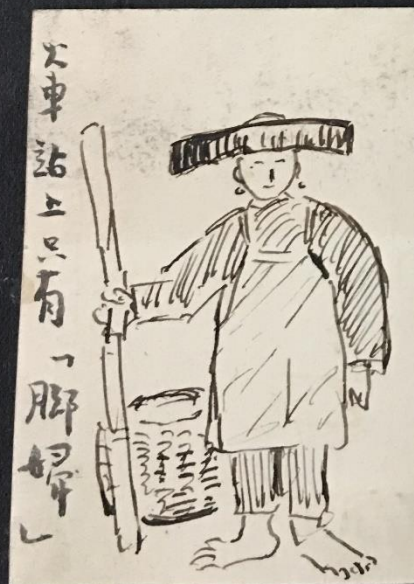 火車站上只有「脚婦」